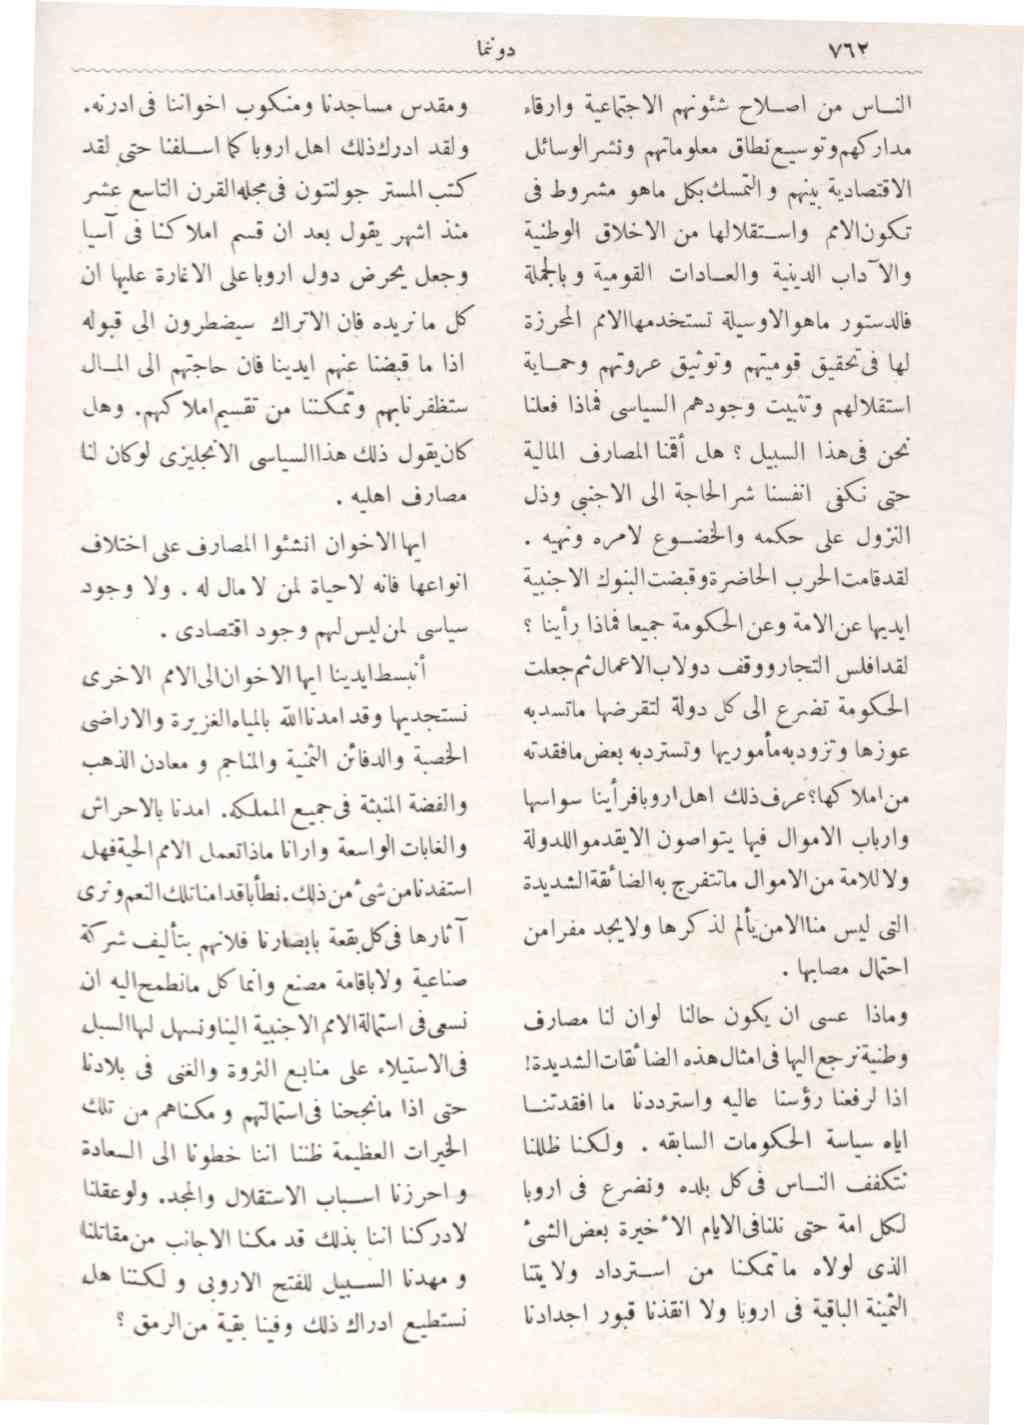 ٧٦٢
دونما
النـاس من اصـلاح شئونهم الاجتماعية وارقاء
مداركهم وتوسيع نطاق معلوماتهم ونشر الوسائل
الاقتصادية بينهم والتمسك بكل ماهو مشروط فى
تكون الامم واسـتقلالها من الاخلاق الوطنية
والآداب الدينية والعـادات القومية وبالجملة
فالدستور ماهو الاوسيلة تستخدمها الامم المحرزة
لها فى تحقيق قوميتهم وتوثيق عروتهم وحمـاية
استقلالهم وتثبيت وجودهم السياسى فماذا فعلنا
نحن فى هذا السبيل ؟ هل أقمنا المصارف المالية
حتى نكفى انفسنا شر الحاجة الى الاجنبى وذل
النزول على حكمه والخضـوع لامره ونهيه .
لقد قامت الحرب الحاضرة وقبضت البنوك الاجنبية
ايديها عن الامة وعن الحكومة جميعا فماذا رأينا ؟
لقد افلس التجار ووقف دولاب الاعمال ثم جعلت
الحكومة تضرع الى كل دولة لتقرضها ماتسد به
عوزها وتزود به مأموريها وتسترد به بعض مافقدته
من املاكها؟ عرف ذلك اهل اروبا فرأينا سواسها
وارباب الاموال فيها يتواصون الا يقدموا للدولة
ولا للامة من الاموال ماتتفرج به الضائقة الشديدة
التى ليس منا الا من يألم لذكرها ولا يجد مفرا من
احتمال مصابها .
وماذا عسى ان يكون حالنا لوان لنا مصارف
وطنية نرجع اليها فى امثال هذه الضائقات الشديدة!
اذا لرفعنا رؤسنا عاليه واسترددنا ما افقدتنـا
اياه سياسة الحكومات السابقه . ولكنا ظللنا
نتكفف النـاس فى كل بلده ونضرع فى اروبا
لكل امة حتى نلنا فى الايام الأخيرة بعض الشىء
الذى لولاه ماتمكنا من اسـترداد ولايتنا
الثمينة الباقية فى اروبا ولا انقذنا قبور اجدادنا
ومقدس مساجدنا ومنكوب اخواننا فى ادرنه.
ولقد ادرك ذلك اهل اروبا كما اسـلفنا حتى لقد
كتب المستر جولنتون فى مجلة القرن التاسع عشر
منذ اشهر يقول بعد ان قسم املاكنا فى آسيا
وجعل يحرض دول اروبا على الاغارة عليها ان
كل مانريده فان الاتراك سيضطرون الى قبوله
اذا ما قبضنا عنهم ايدينا فان حاجتهم الى المـال
ستظفرنا بهم وتمكننا من تقسيم املاكهم. وهل
كان يقول ذلك هذا السياسى الانجليزى لو كان لنا
مصارف اهليه .
ايها الاخوان انشئوا المصارف على اختلاف
انواعها فانه لاحياة لمن لا مال له . ولا وجود
سياسى لمن ليس لهم وجود اقتصادى .
أنبسط ايدينا ايها الاخوان الى الامم الاخرى
نستجديها وقد امدنا الله بالمياه الغزيرة والاراضى
الخصبة والدفائن الثمنية والمناجم و معادن الذهب
والفضة المنبثة فى جميع المملكه. امدنا بالاحراش
والغابات الواسعة وارانا ماذا تعمل الامم الحية فهل
استفدنا من شىء من ذلك. نطأ باقدامنا تلك النعم ونرى
آثارها فى كل بقعة بابصارنا فلا نهم بتأليف شركة
صناعية ولا باقامة مصنع وانما كل مانطمح اليه ان
نسعى فى استمالة الامم الاجنبية الينا ونسهل لها السبل
فى الاستيلاء على منابع الثروة والغنى فى بلادنا
حتى اذا مانجحنا فى استمالتهم و مكناهم من تلك
الخيرات العظيمة ظننا اننا خطونا الى السعادة
و احرزنا اسـباب الاستقلال والمجد. ولوعقلنا
لادركنا اننا بذلك قد مكنا الاجانب من مقاتلنا
و مهدنا السـبيل للفتح الاروبى و لكننا هل
نستطيع ادراك ذلك وفينا بقية من الرمق ؟